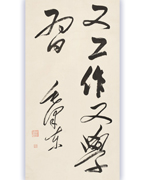 又工作又學
習
毛澤東